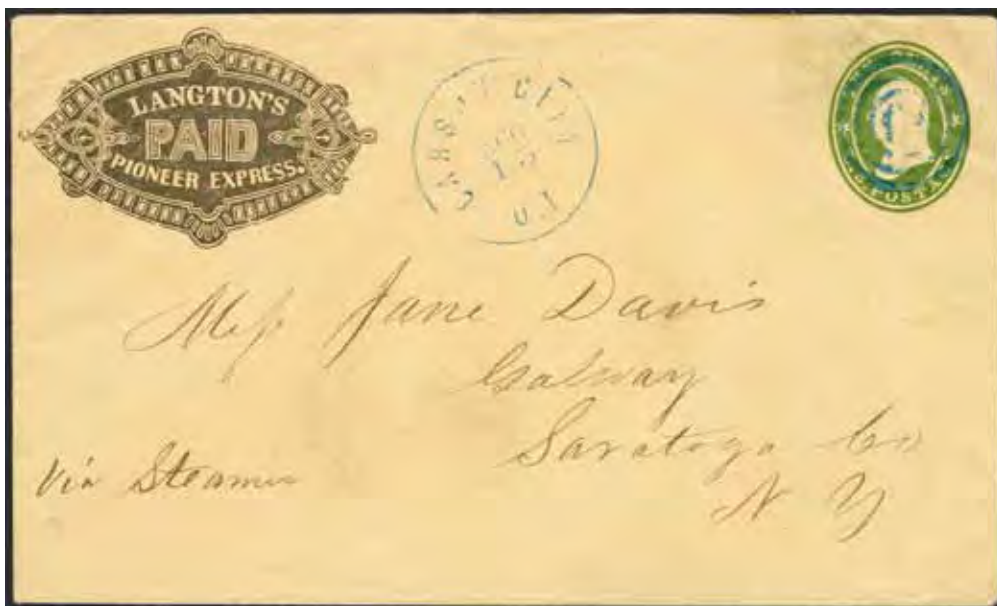 LANGTON'S
PAID
PIONEER EXPRESS.
CARSON CITY
U.T.
Miss Jane Davis
Galway
Saratoga Co
N Y
Via Steamer